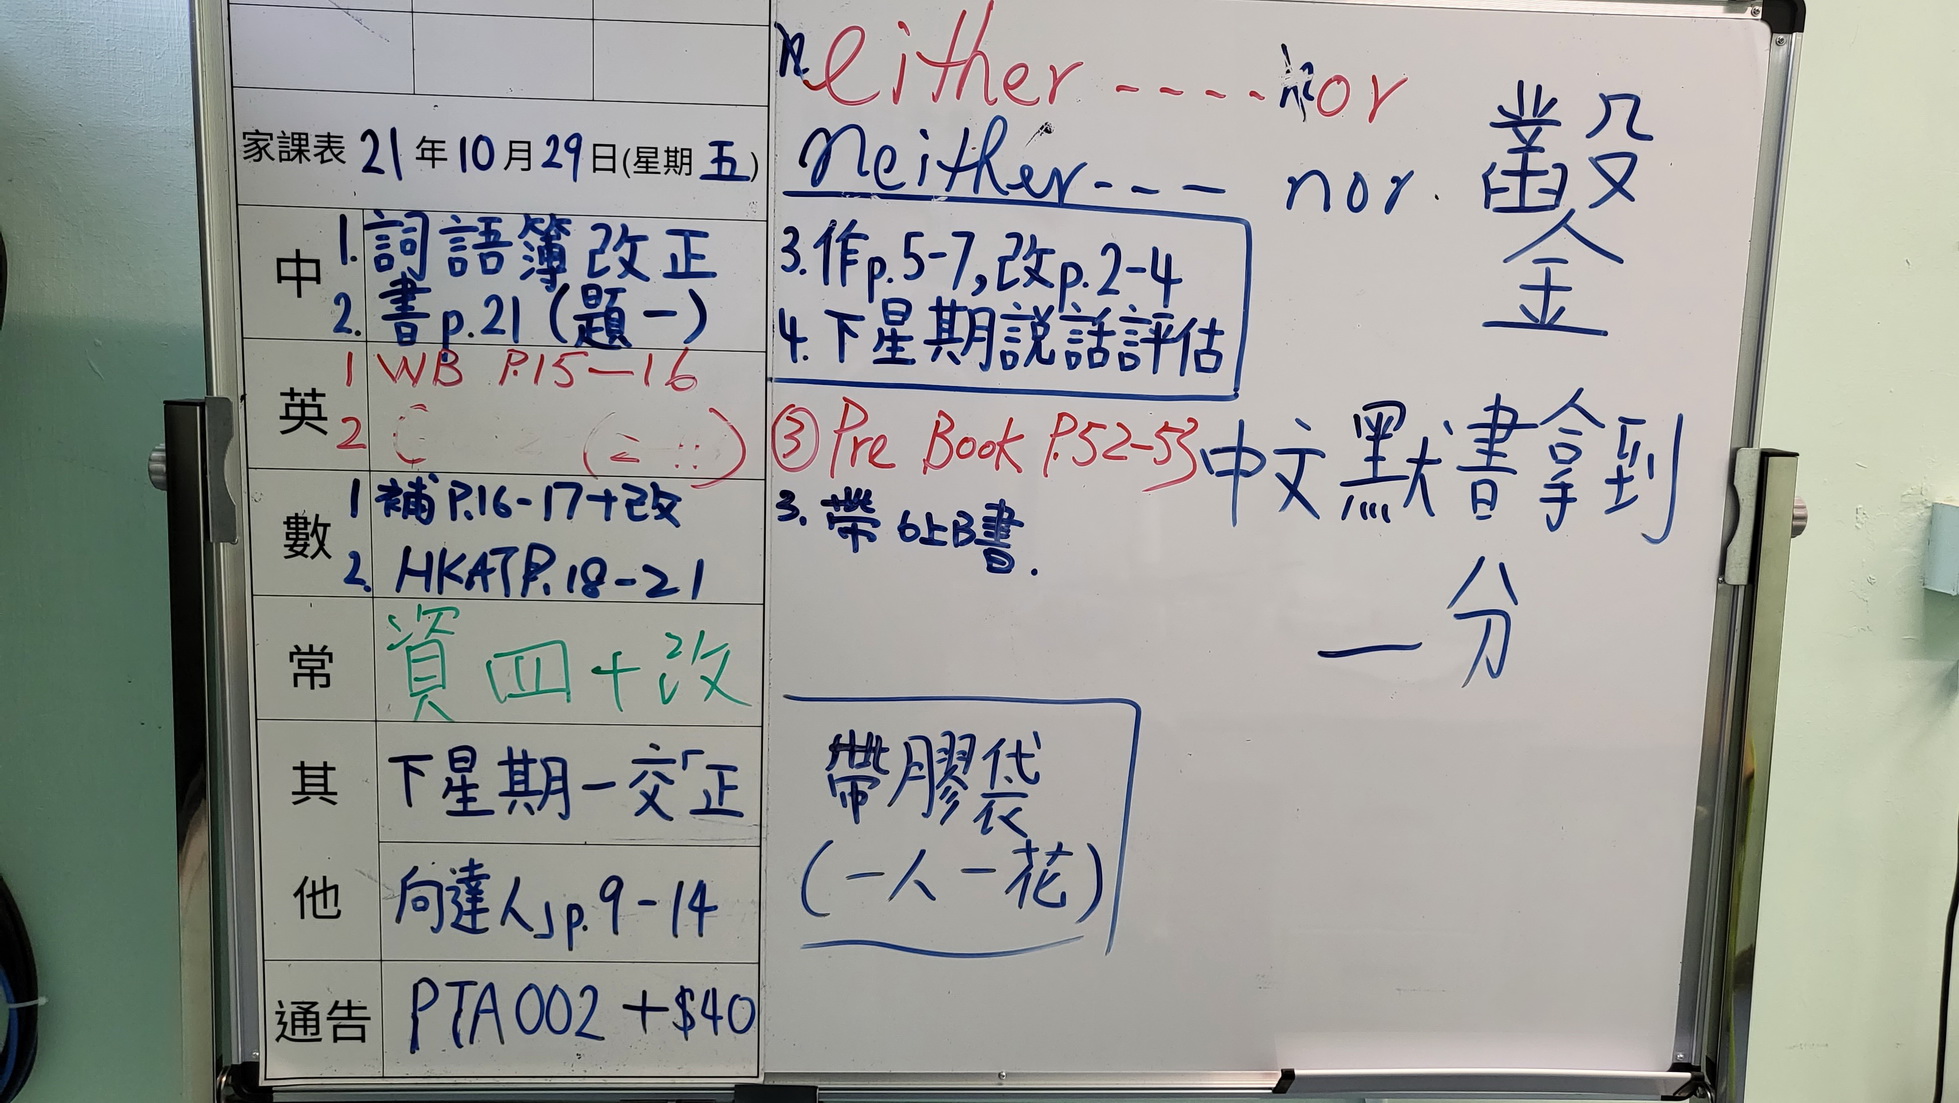 家課表 21年10月29日(星期五)
中
1. 詞語簿改正
2. 書p.21(題一)
英
1 WB P.15—16
2
數
1 補P.16-17+改
2. HKAT P.18-21
常
資四+改
其他
下星期一交「正
向達人」p.9-14
通告
PTA002+$40
neither ----- nor
neither --- nor.
3.作p.5-7,改p.2-4
4.下星期説話評估
③ Pre Book P.52-53
3. 帶6上B書.
帶膠袋
(一人一花)
鑿
中文默書拿到
一分